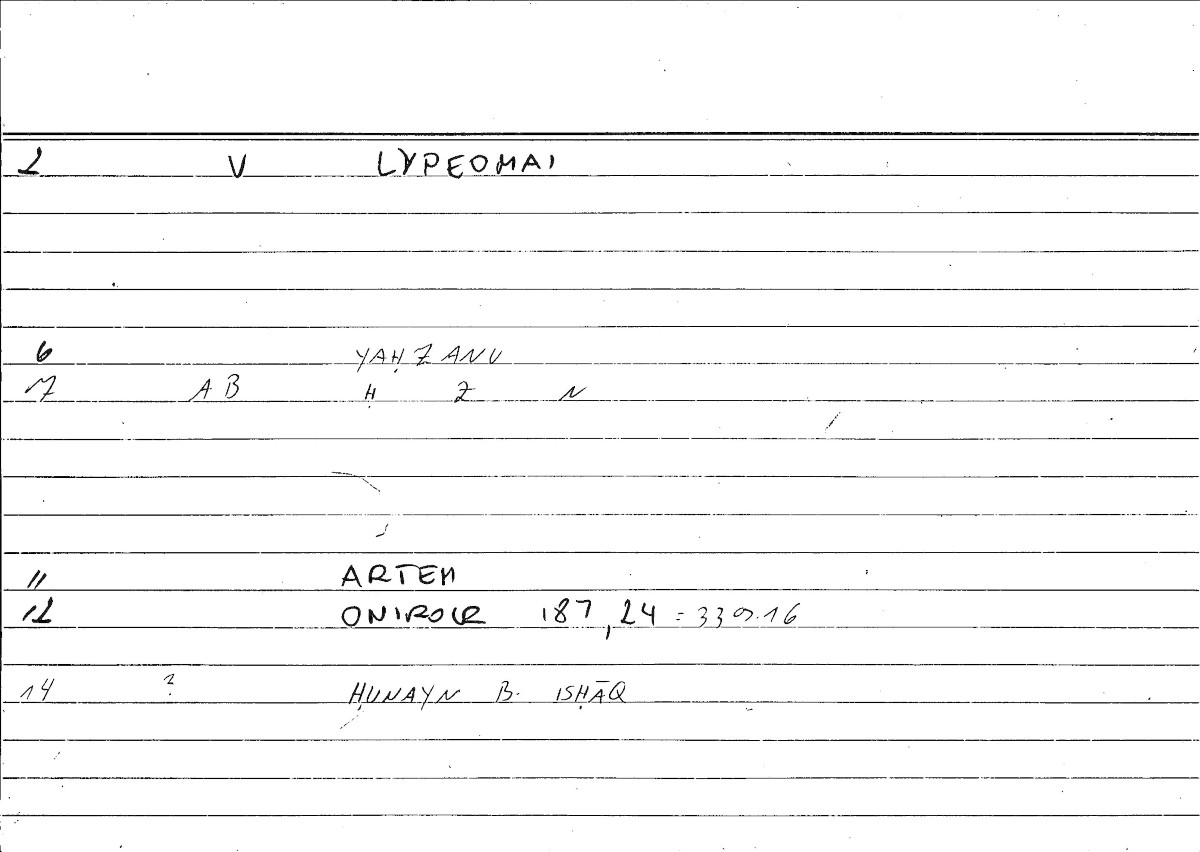 2 V LYPEOMAI
6 YAḤZANU
7 AB Ḥ Z N
11 ARTEM
12 ONIROCR 187,24 = 339.16
14 ? ḤUNAYN B. ISḤĀQ